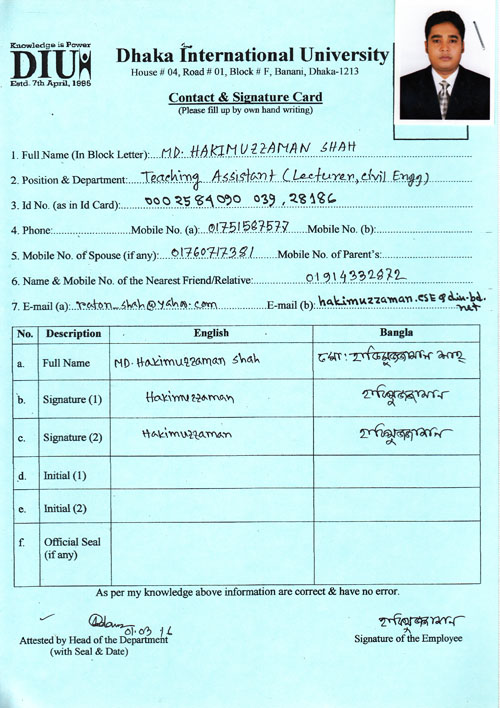 Knowledge is Power
DIU
Estd. 7th April, 1995
Dhaka International University
House # 04, Road # 01, Block # F, Banani, Dhaka-1213
Contact & Signature Card
(Please fill up by own hand writing)
1. Full Name (In Block Letter):...MD. HAKIMUZZAMAN SHAH
2. Position & Department: Teaching Assistant (Lecturer, Civil Engg)
3. Id No. (as in Id Card): 0002584090 039, 28186
4. Phone: Mobile No. (a): 01751587577 Mobile No. (b):
5. Mobile No. of Spouse (if any): 01760717381 Mobile No. of Parent's:
6. Name & Mobile No. of the Nearest Friend/Relative: 01914332872
7. E-mail (a): raton_shah@yahoo.com E-mail (b): hakimuzzaman.CSE@diu-bd.net
No. Description English Bangla
a. Full Name MD. Hakimuzzaman Shah মো: হাকিমুজ্জামান শাহ
b. Signature (1) Hakimuzzaman হাকিমুজ্জামান
c. Signature (2) Hakimuzzaman হাকিমুজ্জামান
d. Initial (1)
e. Initial (2)
f. Official Seal
(if any)
As per my knowledge above information are correct & have no error.
01.03.16 হাকিমুজ্জামান
Attested by Head of the Department Signature of the Employee
(with Seal & Date)